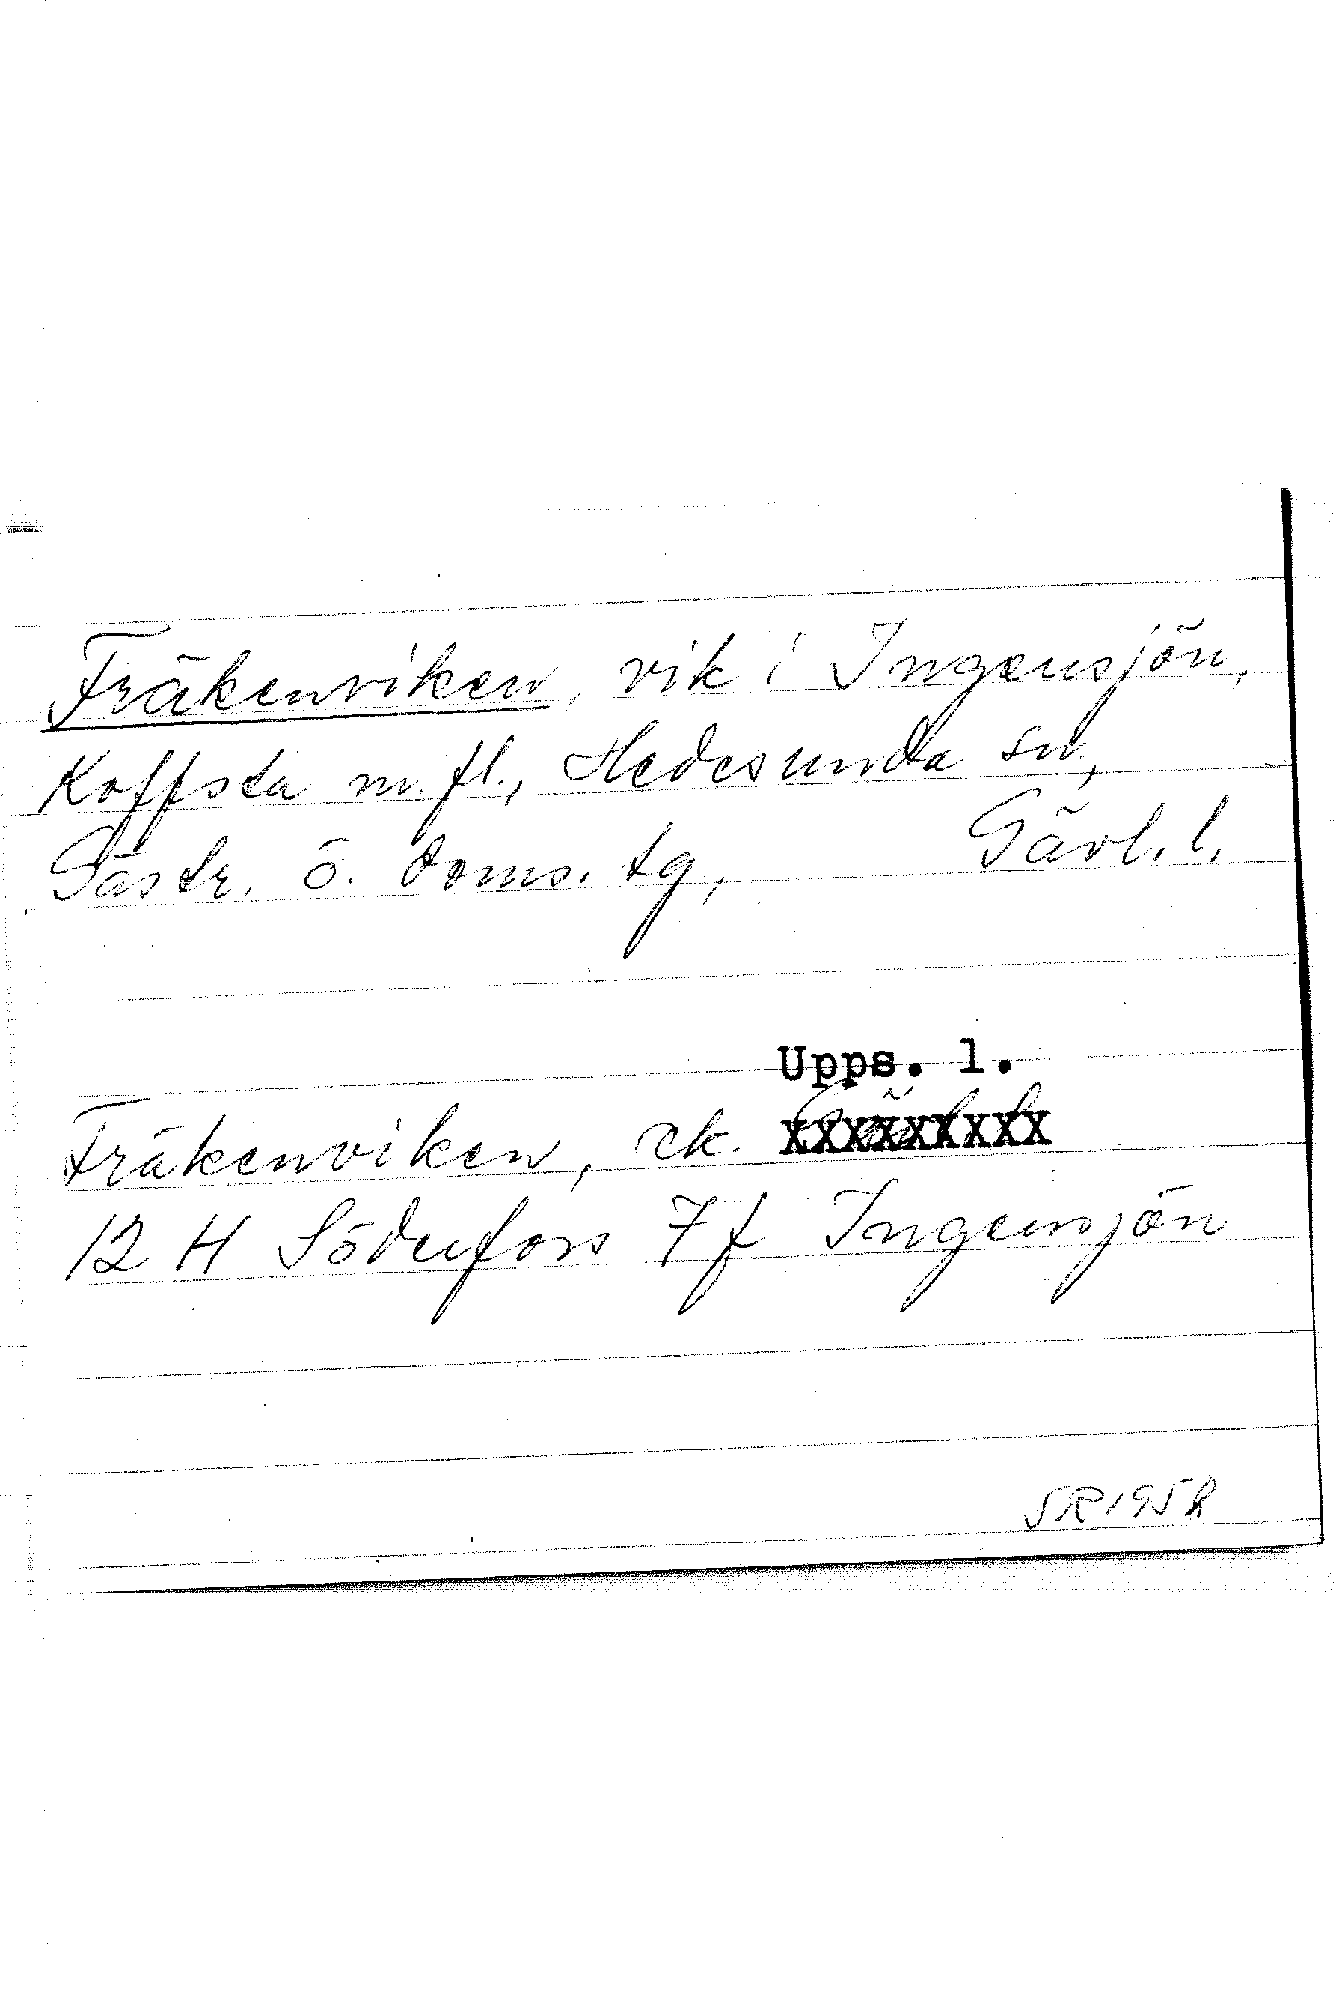 Fräkenviken, vik i Ingensjön,
Koffsta m.fl., Hedesunda sn,
Gästr. ö. doms. tg, Gävl. l.
Upps. l.
Fräkenviken, ek. XXXXXXXXX
12 H Söderfors 7f Ingensjön
SR 1958